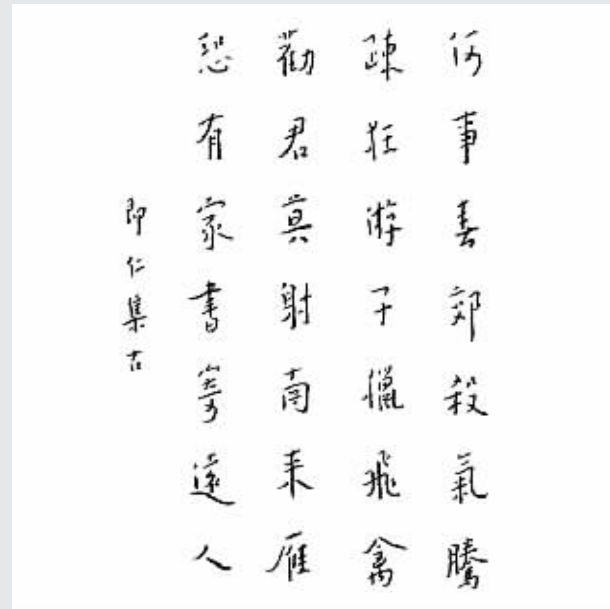 何事春郊殺氣騰
疎狂游子獵飛禽
勸君莫射南来雁
恐有家書寄遠人
即仁集古